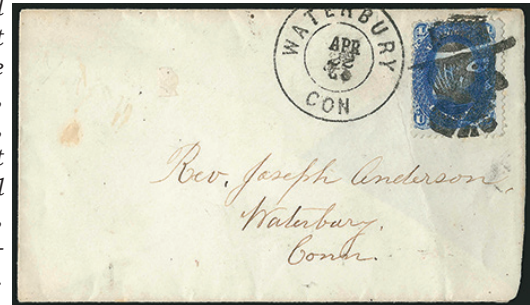 WATERBURY
APR
22
CON
Rev. Joseph Anderson,
Waterbury.
Conn.